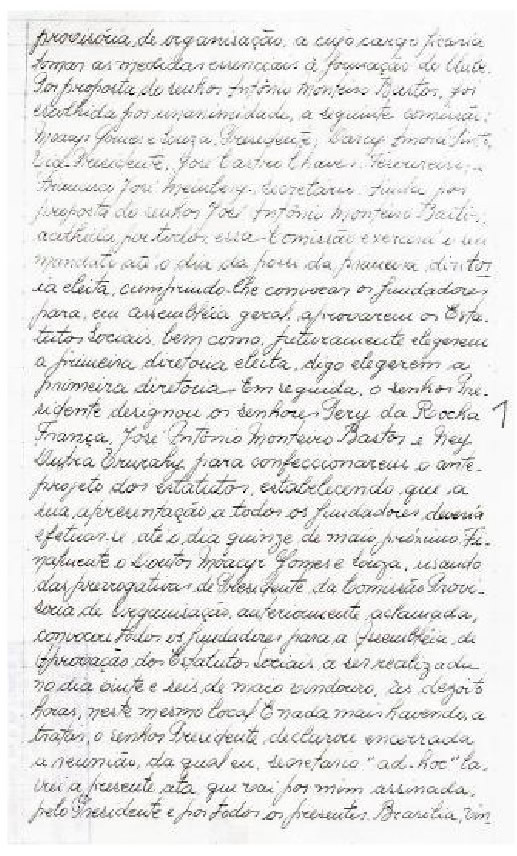 provisória de organisação, a cujo cargo ficaria
tomar as medidas essenciais à formação do Clube.
Por proposta do senhor Antônio Monteiro Bastos, foi
escolhida por unanimidade, a seguinte comissão:
Moacyr Gomes e Souza, Presidente; Darcy
Vice-Presidente, José Castro Chaves Tesoureiro; e
Francisco José Secretário. Ainda por
proposta do senhor José Antônio Monteiro Bastos,
acolhida por todos, essa Comissão exercerá o seu
mandato até o dia da posse da primeira direto
ria eleita, cumprindo-lhe convocar os fundadores
para, em assembléia geral, aprovarem os Esta-
tutos Sociais, bem como, futuramente elegerem
a primeira diretoria eleita, digo elegerem a
primeira diretoria. Em seguida, o senhor Pre-
sidente designou os senhores Pery da Rocha
França, José Antônio Monteiro Bastos e Ney
Dutra Ururahy para confeccionarem o ante-
projeto dos estatutos, estabelecendo que a
sua apresentação a todos os fundadores deveria
efetuar-se até o dia quinze de maio próximo. Fi-
nalmente o Doutor Moacyr Gomes e Souza, usando
das prerrogativas de Presidente da Comissão Provi-
sória de Organisação, anteriormente aclamada,
convocou todos os fundadores para a Assembléia de
aprovação dos Estatutos Sociais, a ser realizada
no dia vinte e seis de maio vindouro, às dezoito
horas, neste mesmo local. E nada mais havendo a
tratar, o senhor Presidente, declarou encerrada
a reunião, da qual eu, secretário "ad-hoc" la-
vrei a presente ata que vai por mim assinada,
pelo Presidente e por todos os presentes. Brasília, vin
1